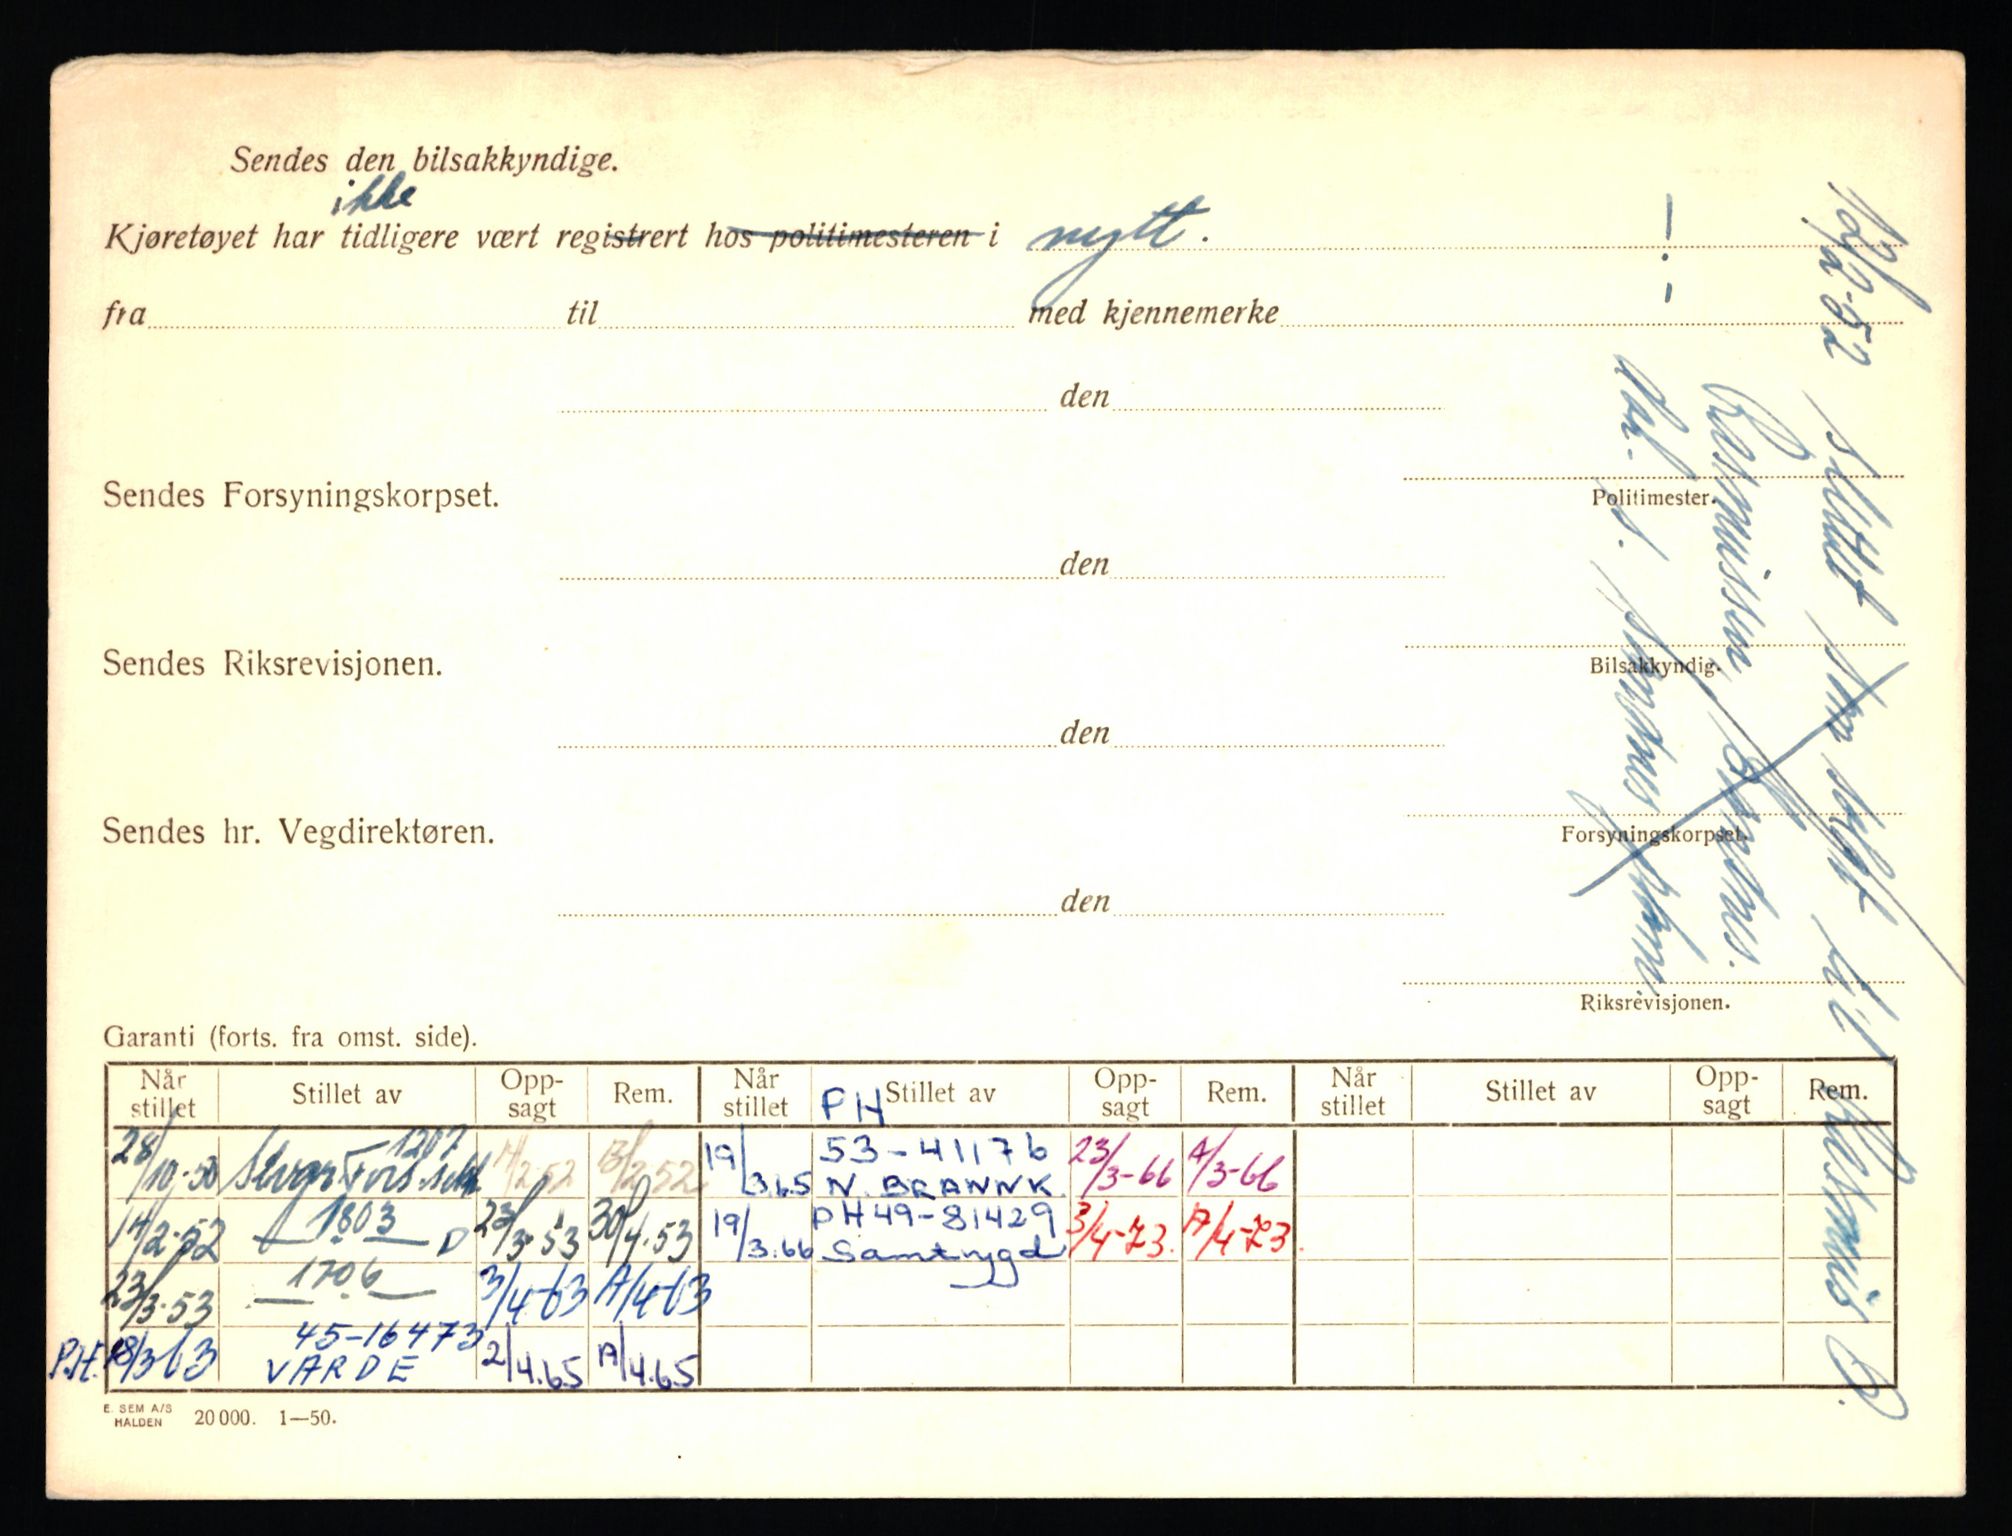 Sendes den bilsakkyndige.
ikke
Kjøretøyet har tidligere vært registrert hos politimesteren i nytt.
fra til med kjennemerke
den
Politimester.
Sendes Forsyningskorpset.
den
Bilsakkyndig.
Sendes Riksrevisjonen.
den
Forsyningskorpset.
Sendes hr. Vegdirektøren.
den
Riksrevisjonen.
Garanti (forts. fra omst. side).
Når stillet Stillet av Oppsagt Rem. Når stillet PH Stillet av Oppsagt Rem. Når stillet Stillet av Oppsagt Rem.
28/10-50 1207 14/2 52 13/2-52 19/3.65 53-41176 N. BRANNK. 23/3-66 A/3-66
14/2-52 1803 D 23/3-53 30/4-53 19/3.66 PH 49-81429 Samtrygd 3/4-73. A/4-73.
23/3-53 1706 3/4-63 A/4-63
P.H. 18/3 63 45-16473 VARDE 2/4.65 A/4.65
E. SEM A/S
HALDEN 20 000. 1—50.
til
Sandnes